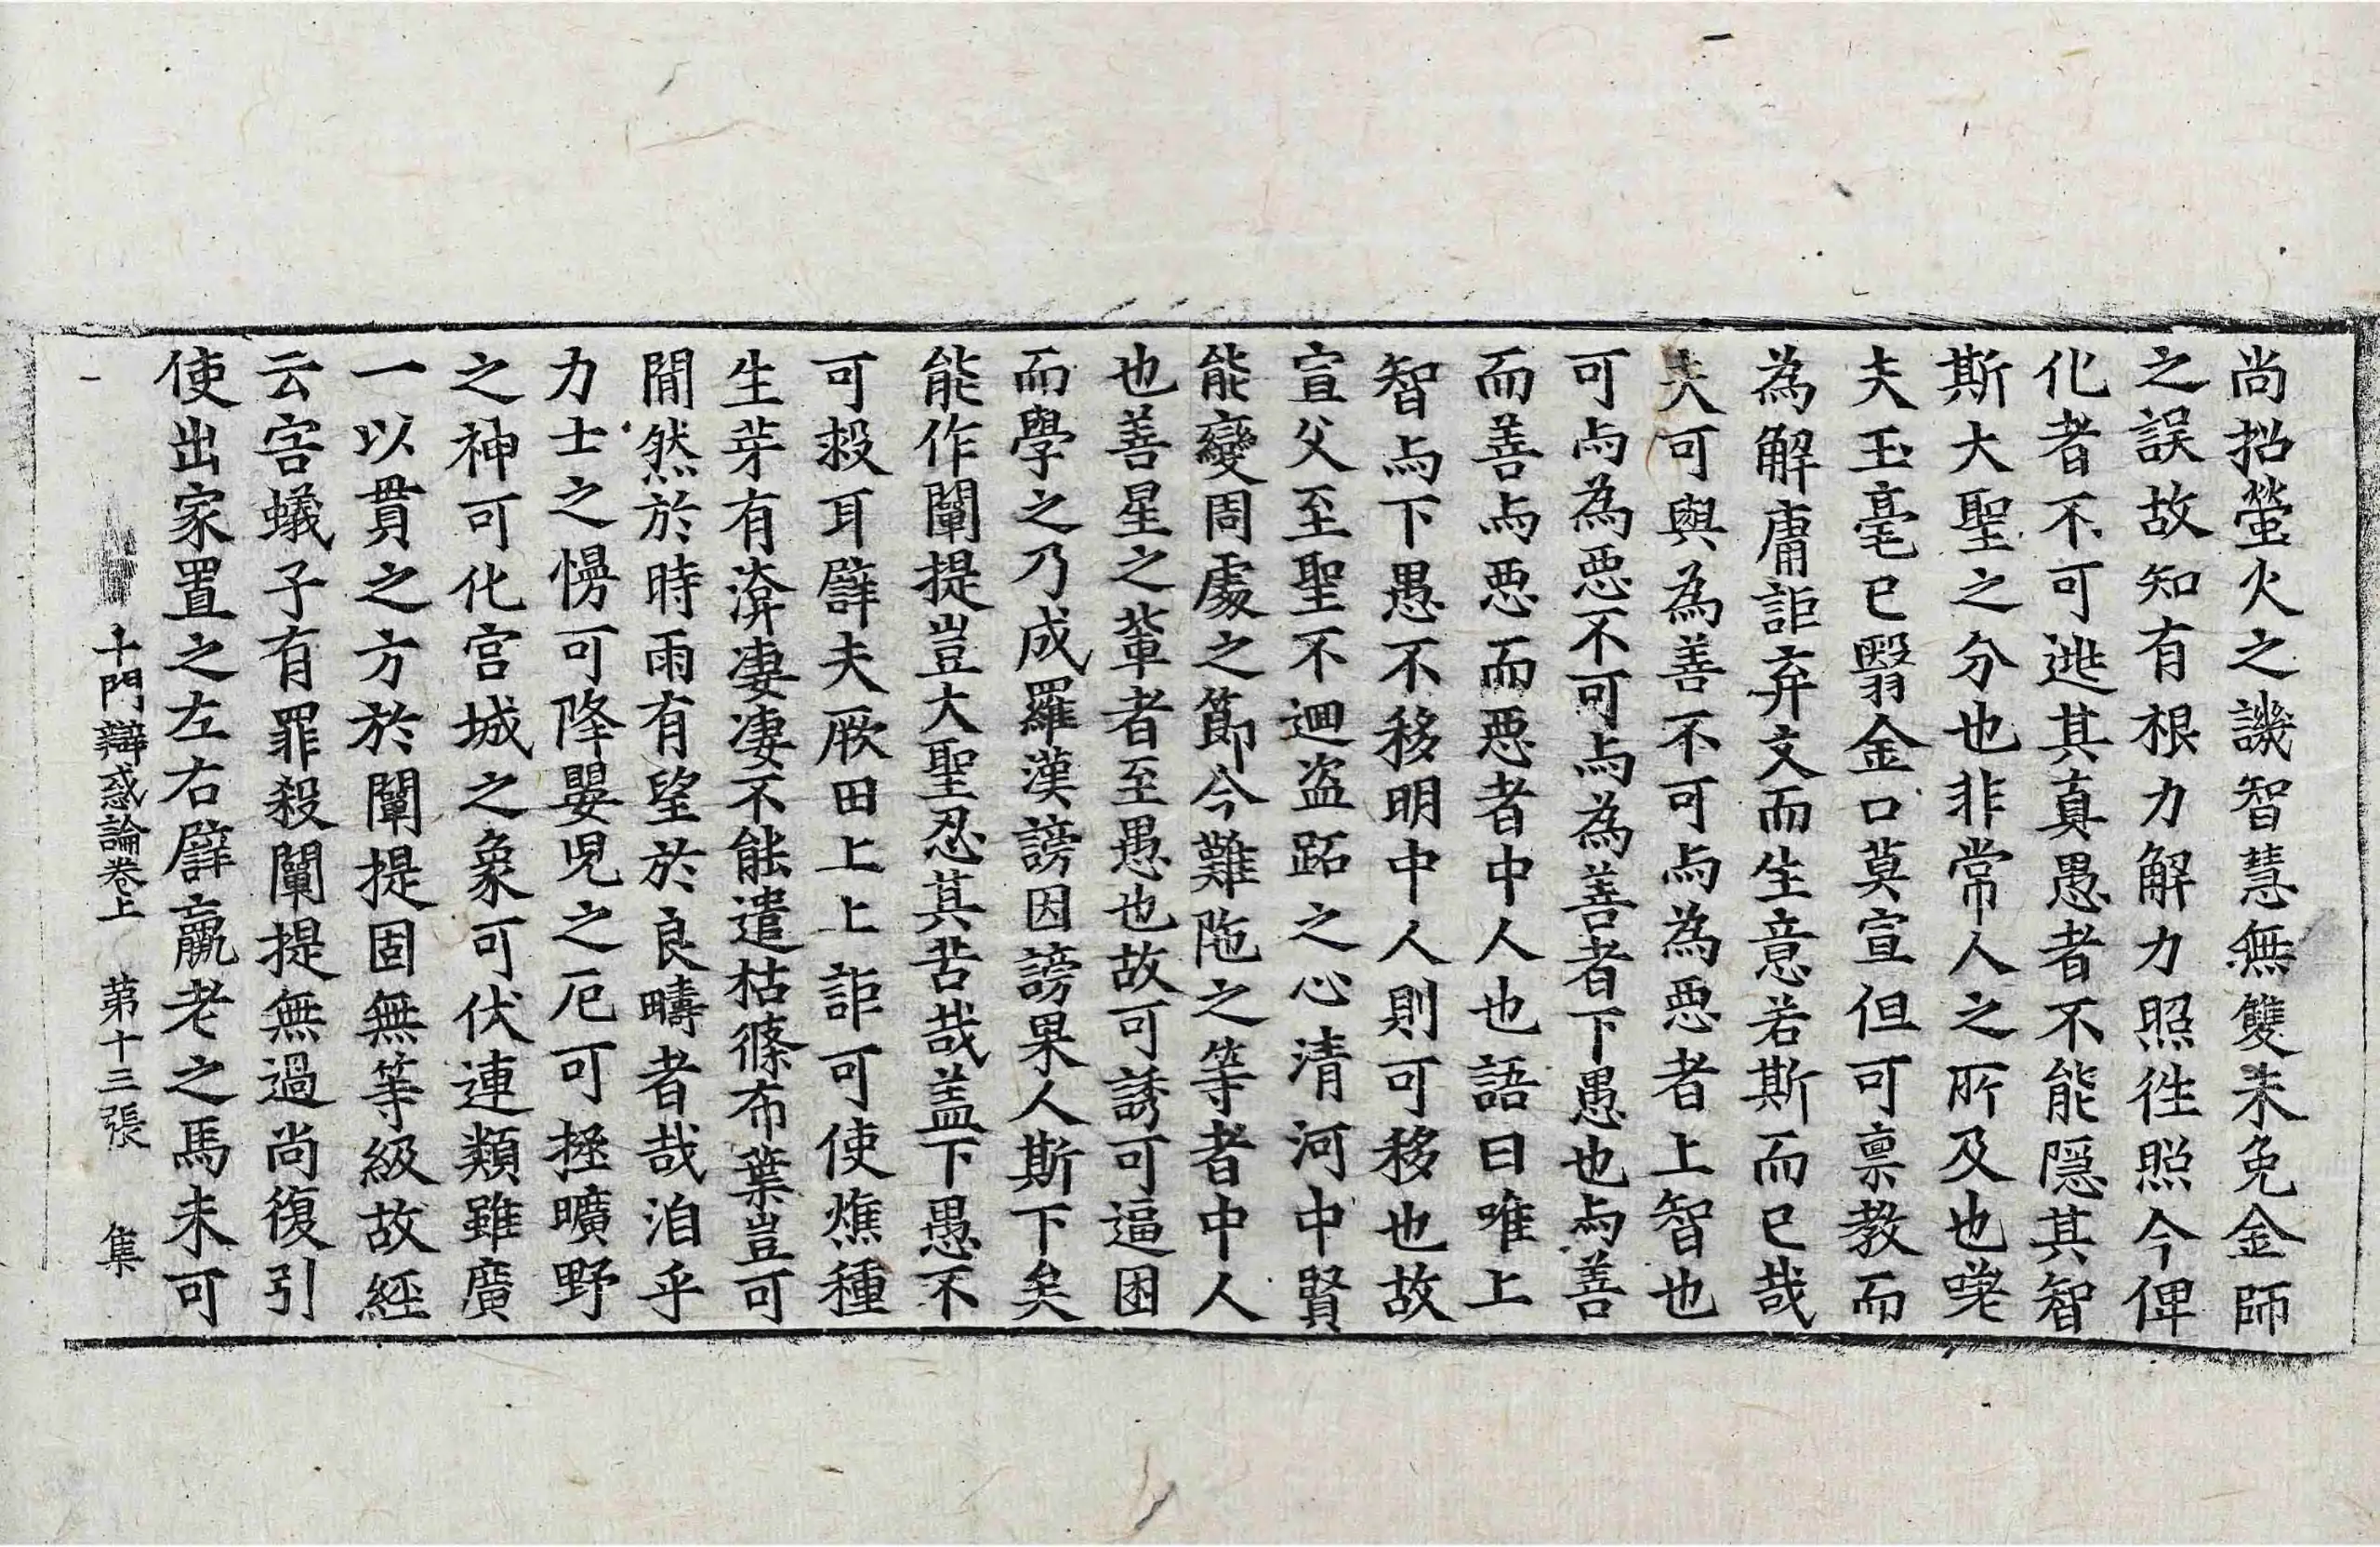 尚招螢火之譏智慧無雙未免金師
之誤故知有根力解力照徃照今俾
化者不可逃其真愚者不能隠其智
斯大聖之分也非常人之所及也嗟
夫玉毫已翳金口莫宣但可禀教而
為解庸詎弃文而生意若斯而已哉
夫可與為善不可与為惡者上智也
可与為惡不可与為善者下愚也与善
而善与惡而惡者中人也語曰唯上
智与下愚不移明中人則可移也故
宣父至聖不迴盗跖之心清河中賢
能變周處之節今難陁之等者中人
也善星之軰者至愚也故可誘可逼困
而學之乃成羅漢謗因謗果人斯下矣
能作闡提豈大聖忍其苦哉盖下愚不
可殺耳譬夫厥田上上詎可使燋種
生芽有渰凄凄不能遣枯篠布葉豈可
閒然於時雨有望於良疇者哉洎乎
力士之慢可降嬰児之厄可拯曠野
之神可化宫城之象可伏連類雖廣
一以貫之方於闡提固無等級故経
云害蟻子有罪殺闡提無過尚復引
使出家置之左右譬羸老之馬未可
十門辯惑論卷上 第十三張 集